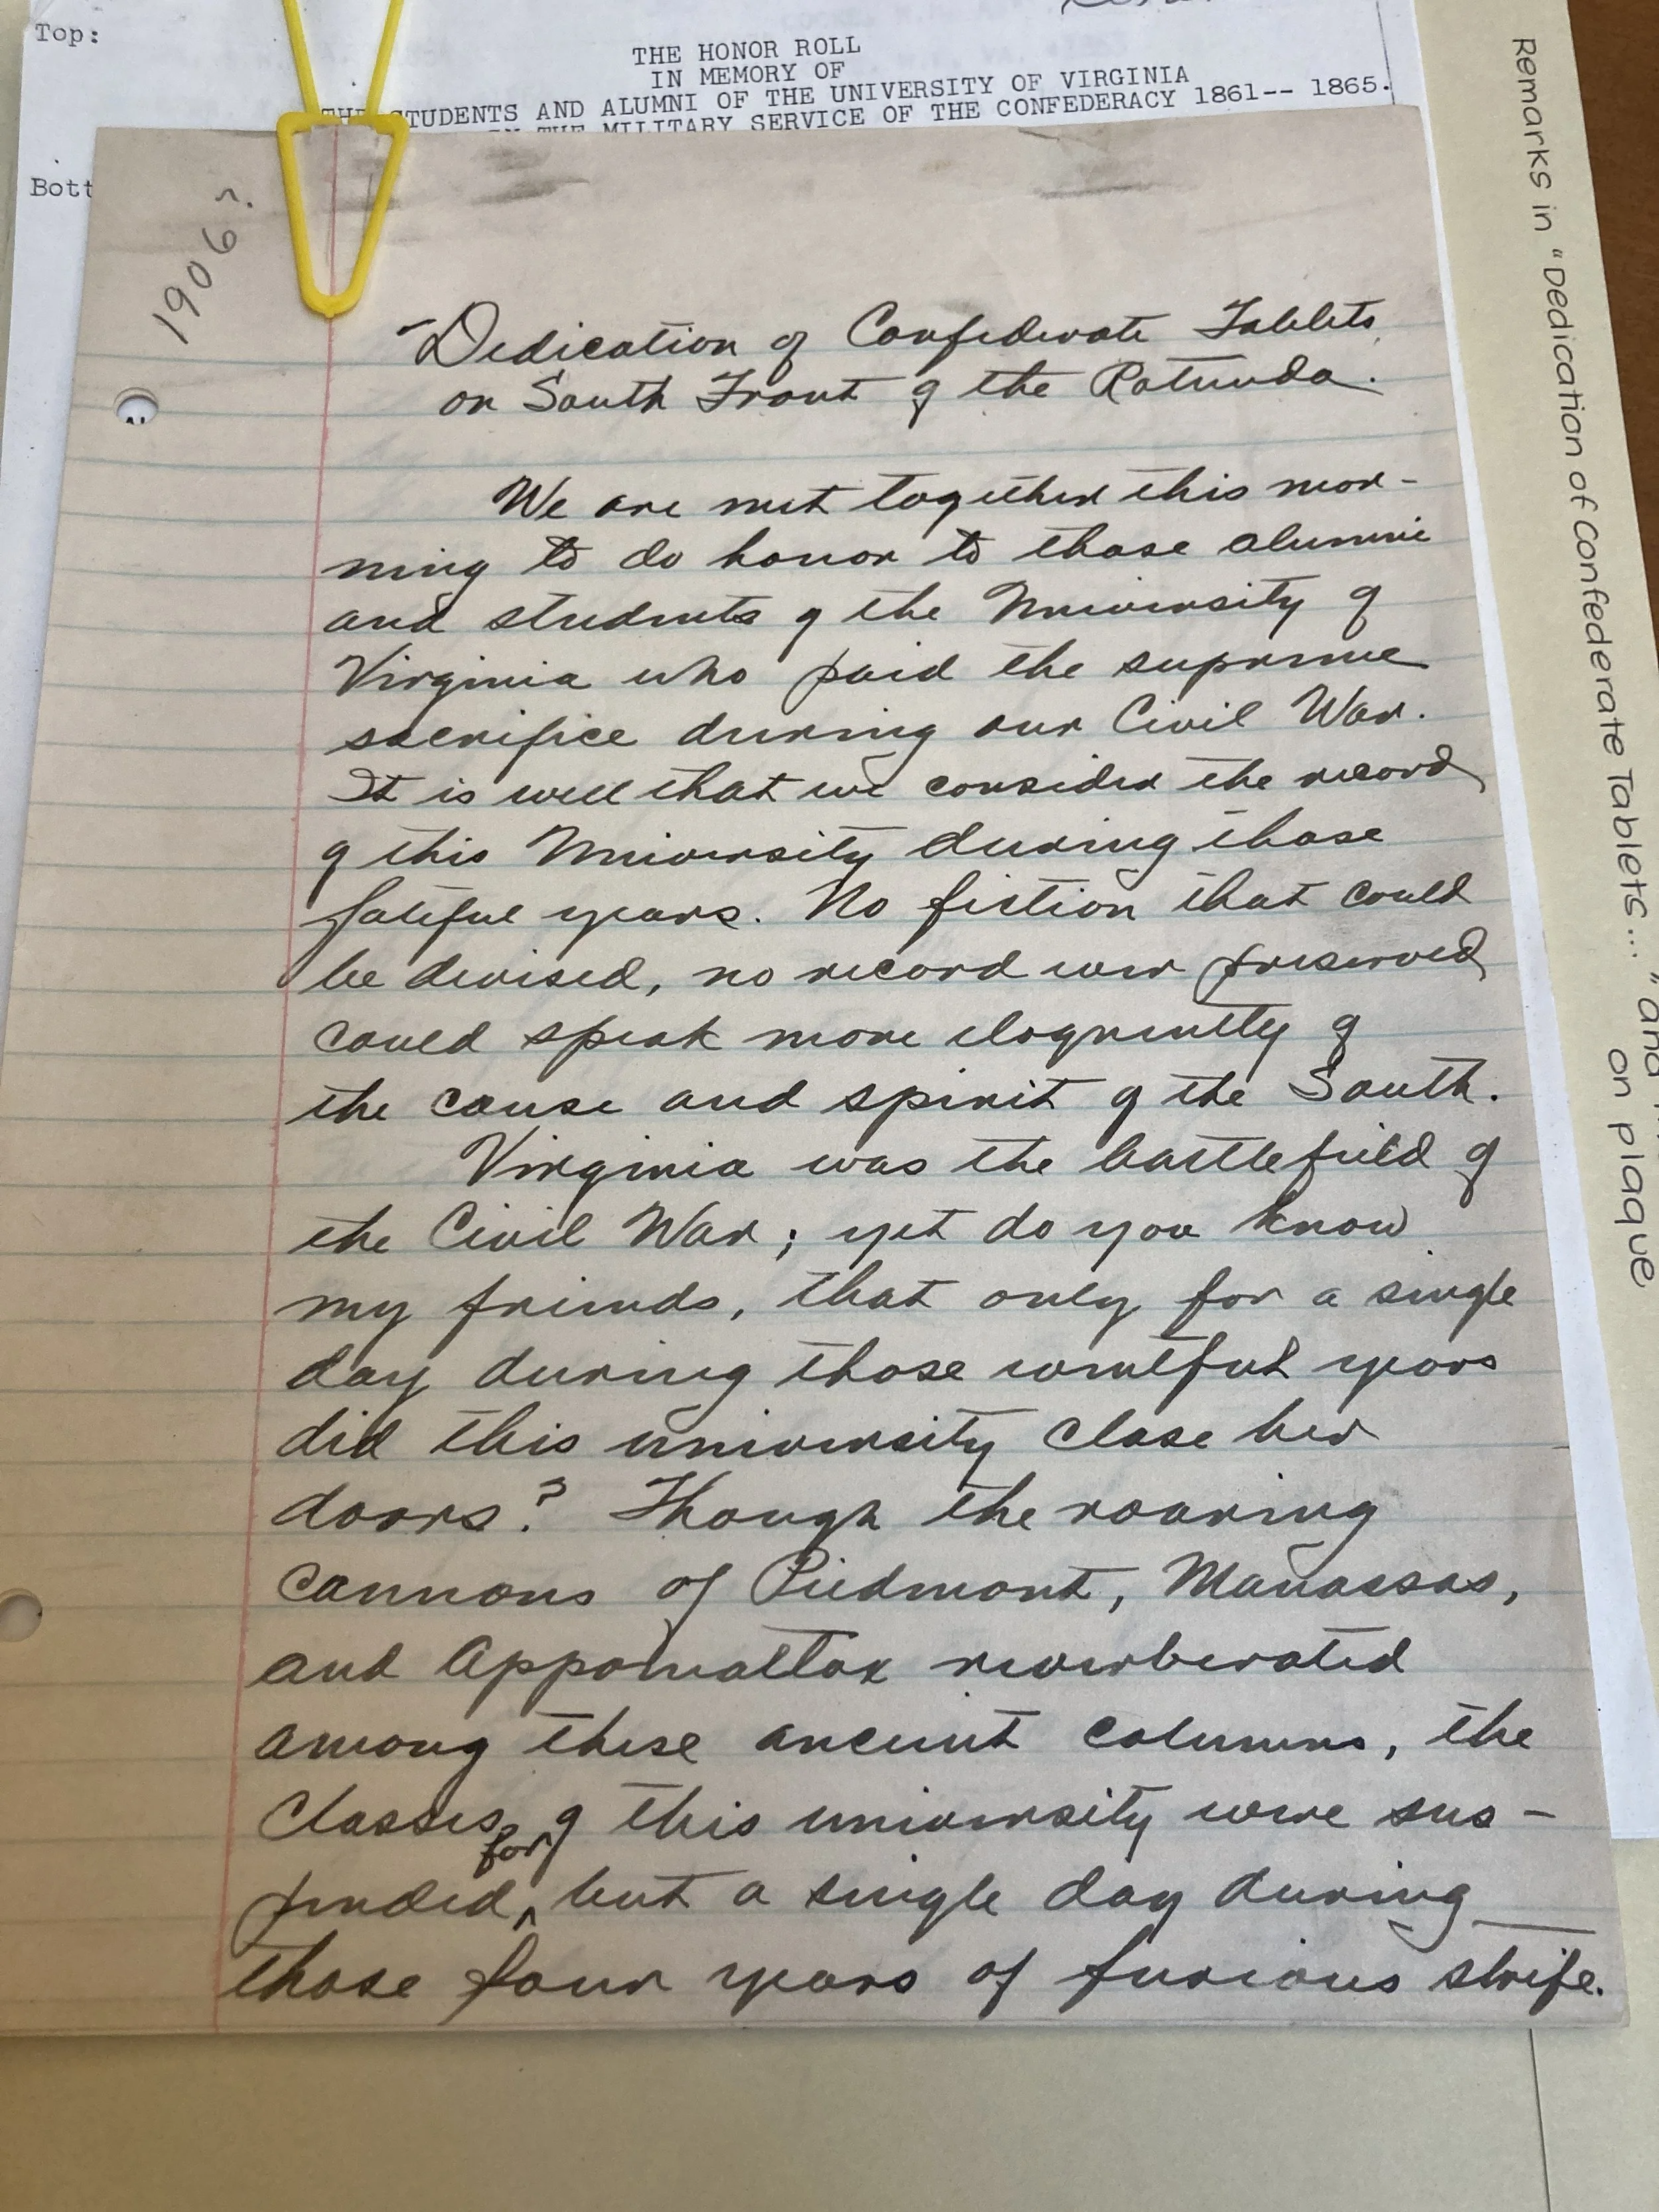 Top:
THE HONOR ROLL
IN MEMORY OF
THE STUDENTS AND ALUMNI OF THE UNIVERSITY OF VIRGINIA
THE MILITARY SERVICE OF THE CONFEDERACY 1861-- 1865.
Bott
1906?
"Dedication of Confederate Tablets
on South Front of the Rotunda.
We are met together this mor-
ning to do honor to those alumni
and students of the University of
Virginia who paid the supreme
sacrifice during our Civil War.
It is well that we consider the record
of this University during those
fateful years. No fiction that could
be devised, no record ever preserved
could speak more eloquently of
the cause and spirit of the South.
Virginia was the battlefield of
the Civil War; yet do you know
my friends, that only for a single
day during those eventful years
did this university close her
doors? Though the roaring
cannons of Piedmont, Manassas,
and Appomattox reverberated
among these ancient columns, the
classes of this university were sus-
for
pended, but a single day during
those four years of furious strife.
Remarks in "Dedication of Confederate Tablets..." and
on plaque